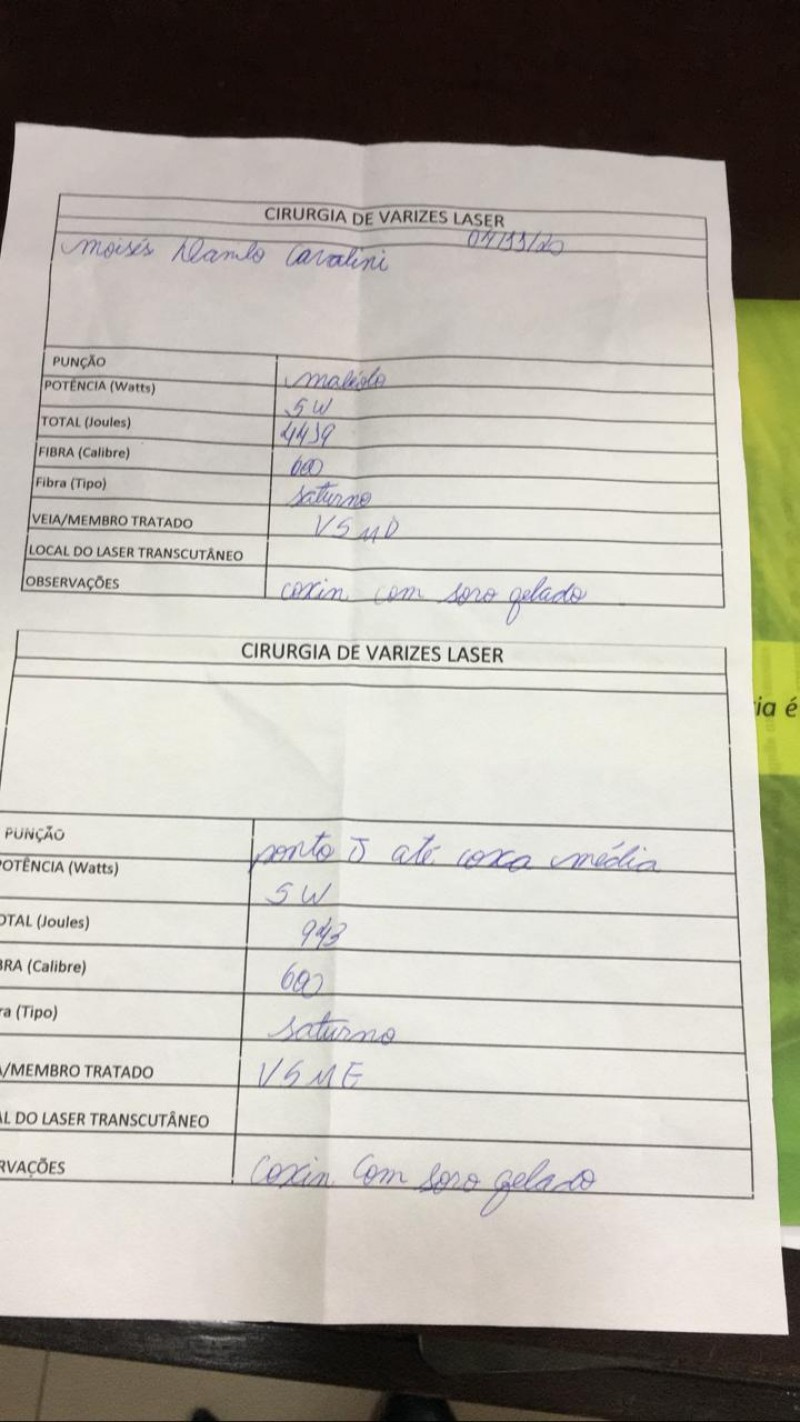 CIRURGIA DE VARIZES LASER
Moisés Danilo Cavalini 04/11/20
PUNÇÃO maléolo
POTÊNCIA (Watts) 5W
TOTAL (Joules) 4419
FIBRA (Calibre) 600
Fibra (Tipo) saturno
VEIA/MEMBRO TRATADO VSMD
LOCAL DO LASER TRANSCUTÂNEO
OBSERVAÇÕES coxin com soro gelado
CIRURGIA DE VARIZES LASER
ia é
PUNÇÃO ponto J até coxa média
POTÊNCIA (Watts) 5W
OTAL (Joules) 943
BRA (Calibre) 600
ra (Tipo) saturno
A/MEMBRO TRATADO VSME
AL DO LASER TRANSCUTÂNEO
RVAÇÕES Coxin Com soro gelado